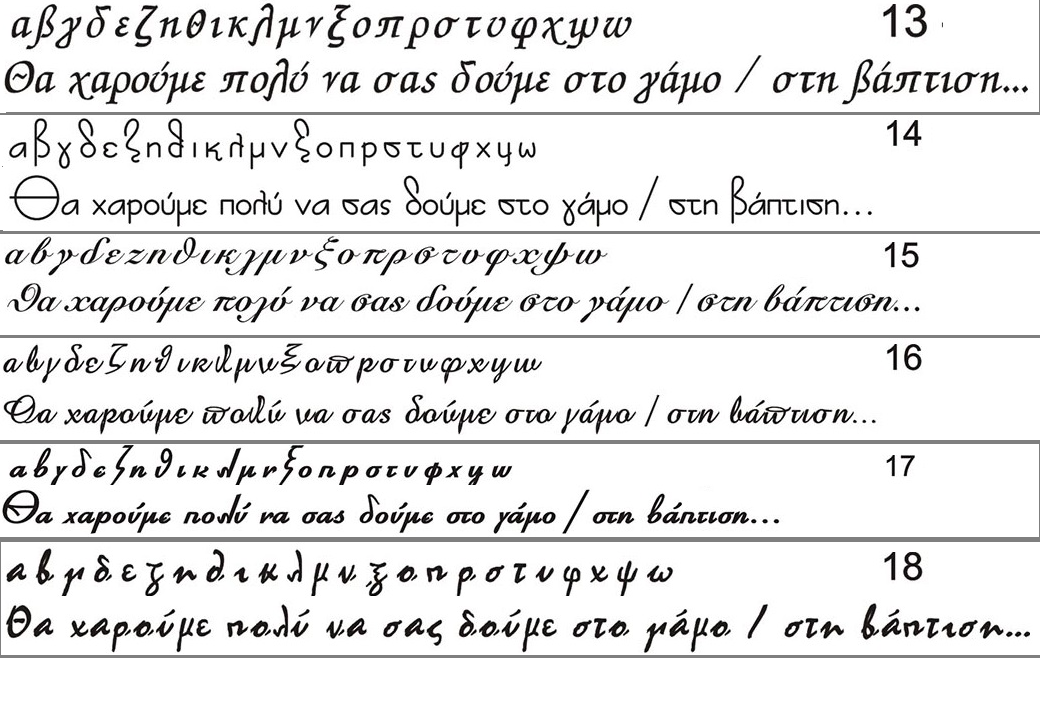 αβγδεζηθικλμνξοπρστυφχψω 13
Θα χαρούμε πολύ να σας δούμε στο γάμο / στη βάπτιση...
αβγδεξηθικλμνξοπρστυφχψω 14
Θα χαρούμε πολύ να σας δούμε στο γάμο / στη βάπτιση...
αβγδεζηθικλμνξοπρστυφχψω 15
θα χαρούμε πολύ να σας δούμε στο γάμο / στη βάπτιση...
αβγδεζηθικλμνξοπρστυφχψω 16
Θα χαρούμε πολύ να σας δούμε στο γάμο / στη βάπτιση...
αβγδεζηθικλμνξοπρστυφχψω 17
Θα χαρούμε πολύ να σας δούμε στο γάμο / στη βάπτιση...
αβγδεζηθικλμνξοπρστυφχψω 18
Θα χαρούμε πολύ να σας δούμε στο γάμο / στη βάπτιση...